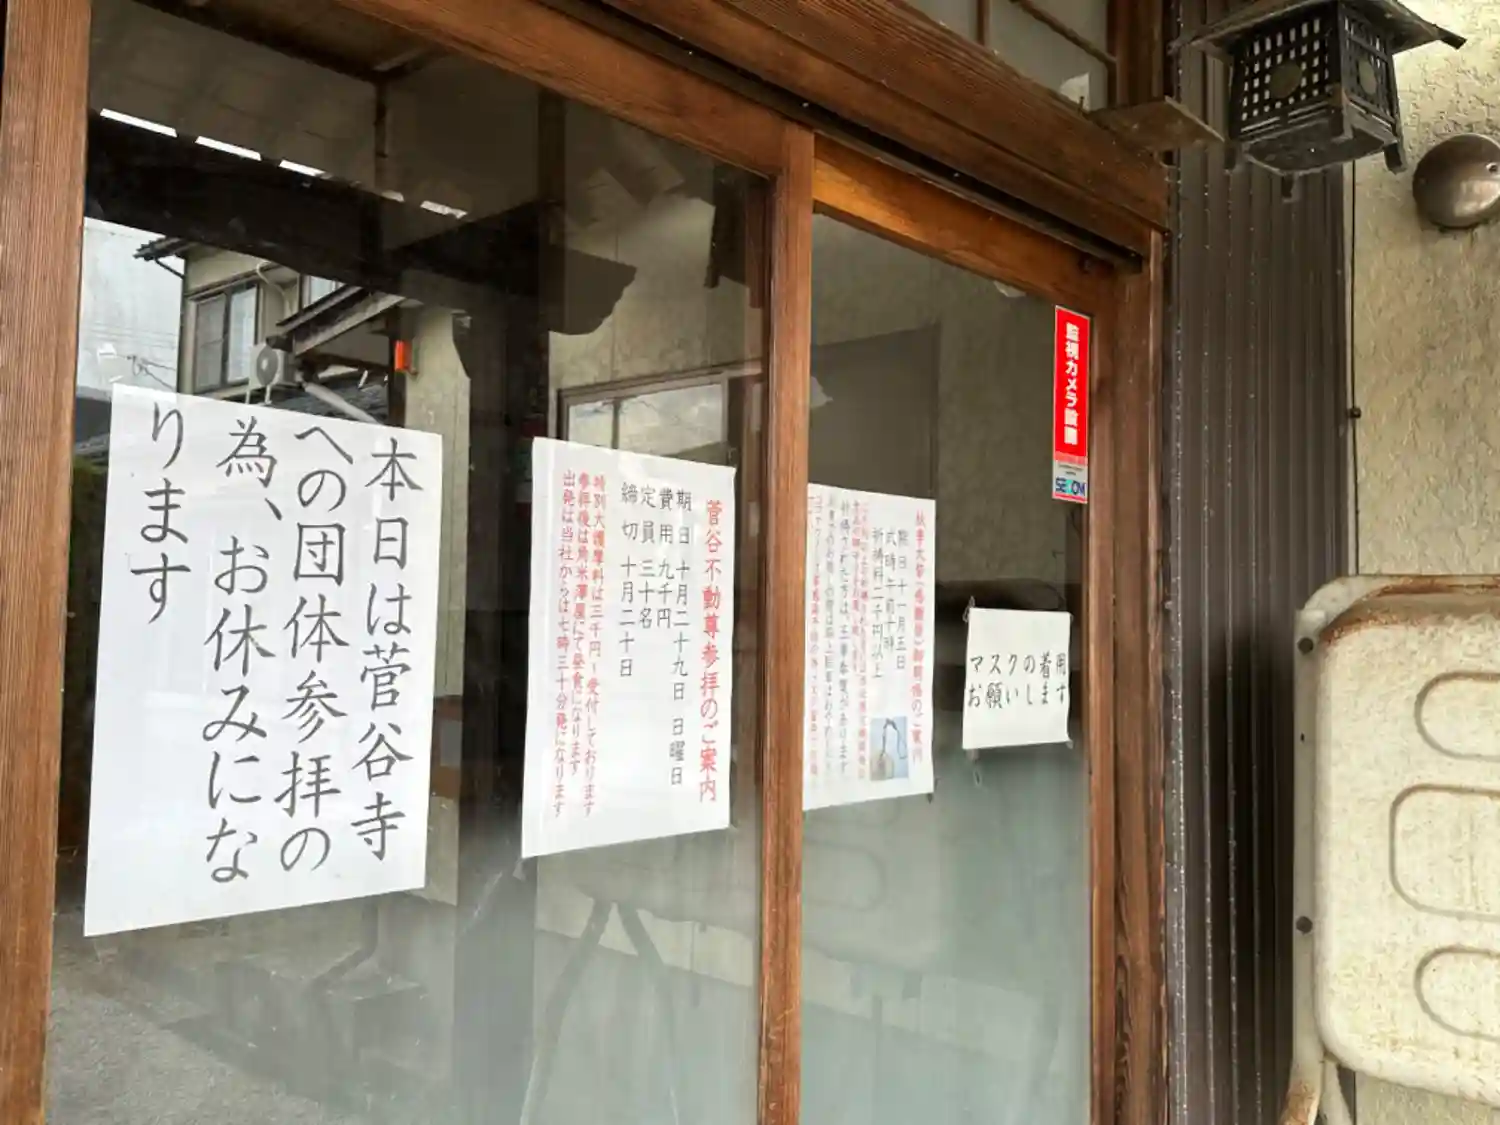 本日は菅谷寺
への団体参拝の
為、お休みにな
ります
菅谷不動尊参拝のご案内
期日 十月二十九日 日曜日
費用 九千円
定員 三十名
締切 十月二十日
特別大護摩料は三千円〜受付しております
参拝後は角米澤屋にて昼食になります
出発は当社からは七時三十分発になります
期日 十一月五日
式時 午前十時
祈祷料 二千円以上
マスクの着用
お願いします
監視カメラ設置
SECOM